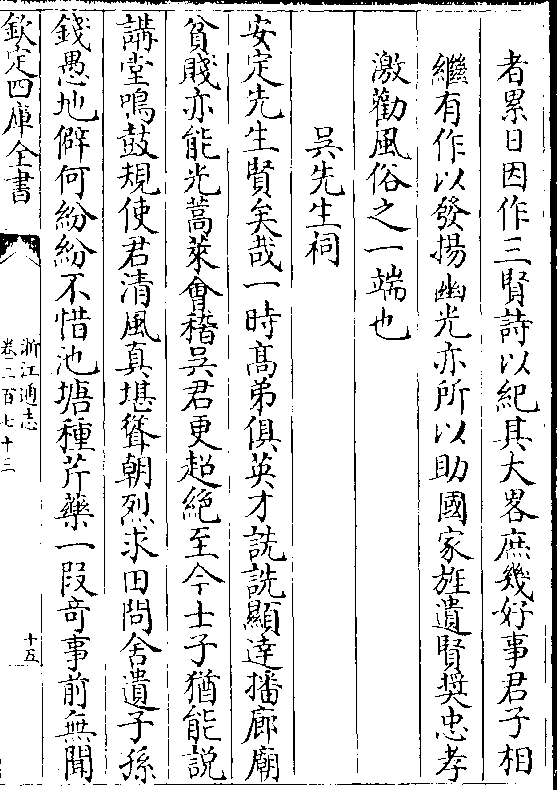 者累日因作三賢詩以紀其大畧庶幾好事君子相
繼有作以發揚幽光亦所以助國家旌遺賢奬忠孝
激勸風俗之一端也
吳先生祠
安定先生賢矣哉一時髙弟俱英才詵詵顯逹播廊廟
貧賤亦能光蒿萊㑹稽吳君更超絶至今士子猶能説
講堂鳴鼓規使君清風真堪聳朝烈求田問舍遺子孫
錢愚地僻何紛紛不惜池塘種芹藥一叚竒事前無聞
欽定四庫全書
浙江通志
卷二百七十三
十五